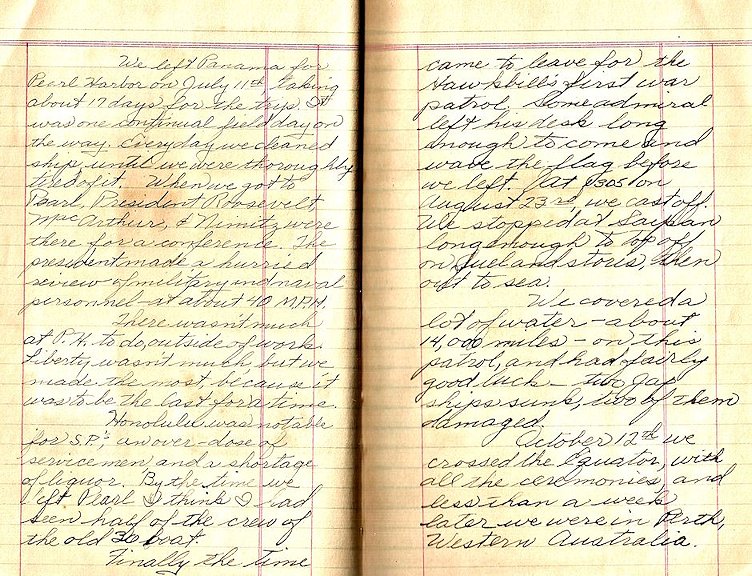 We left Panama for
Pearl Harbor on July 11th, taking
about 17 days for the trip. It
was one continual field day on
the way. Everyday we cleaned
ship, until we were thoroughly
tired of it. When we got to
Pearl, President Roosevelt,
MacArthur, & Nimitz were
there for a conference. The
president made a hurried
review of military and naval
personnel - at about 40 M.P.H.
There wasn't much
at P.H. to do, outside of work.
Liberty wasn't much, but we
made the most, because it
was to be the last for a time.
Honolulu was notable
for S.P.'s, an over-dose of
servicemen and a shortage
of liquor. By the time we
left Pearl I think I had
seen half of the crew of
the old 30 boat.
Finally the time
came to leave for the
Hawkbill's first war
patrol. Some admiral
left his desk long
enough to come and
wave the flag before
we left. At 1305 on
August 23rd, we cast off.
We stopped at Saipan
long enough to top off
on fuel and stores, then
out to sea.
We covered a
lot of water - about
14,000 miles - on this
patrol, and had fairly
good luck - two Jap
ships sunk, two of them
damaged.
October 12th we
crossed the Equator, with
all the ceremonies, and
less than a week
later we were in Perth,
Western Australia.